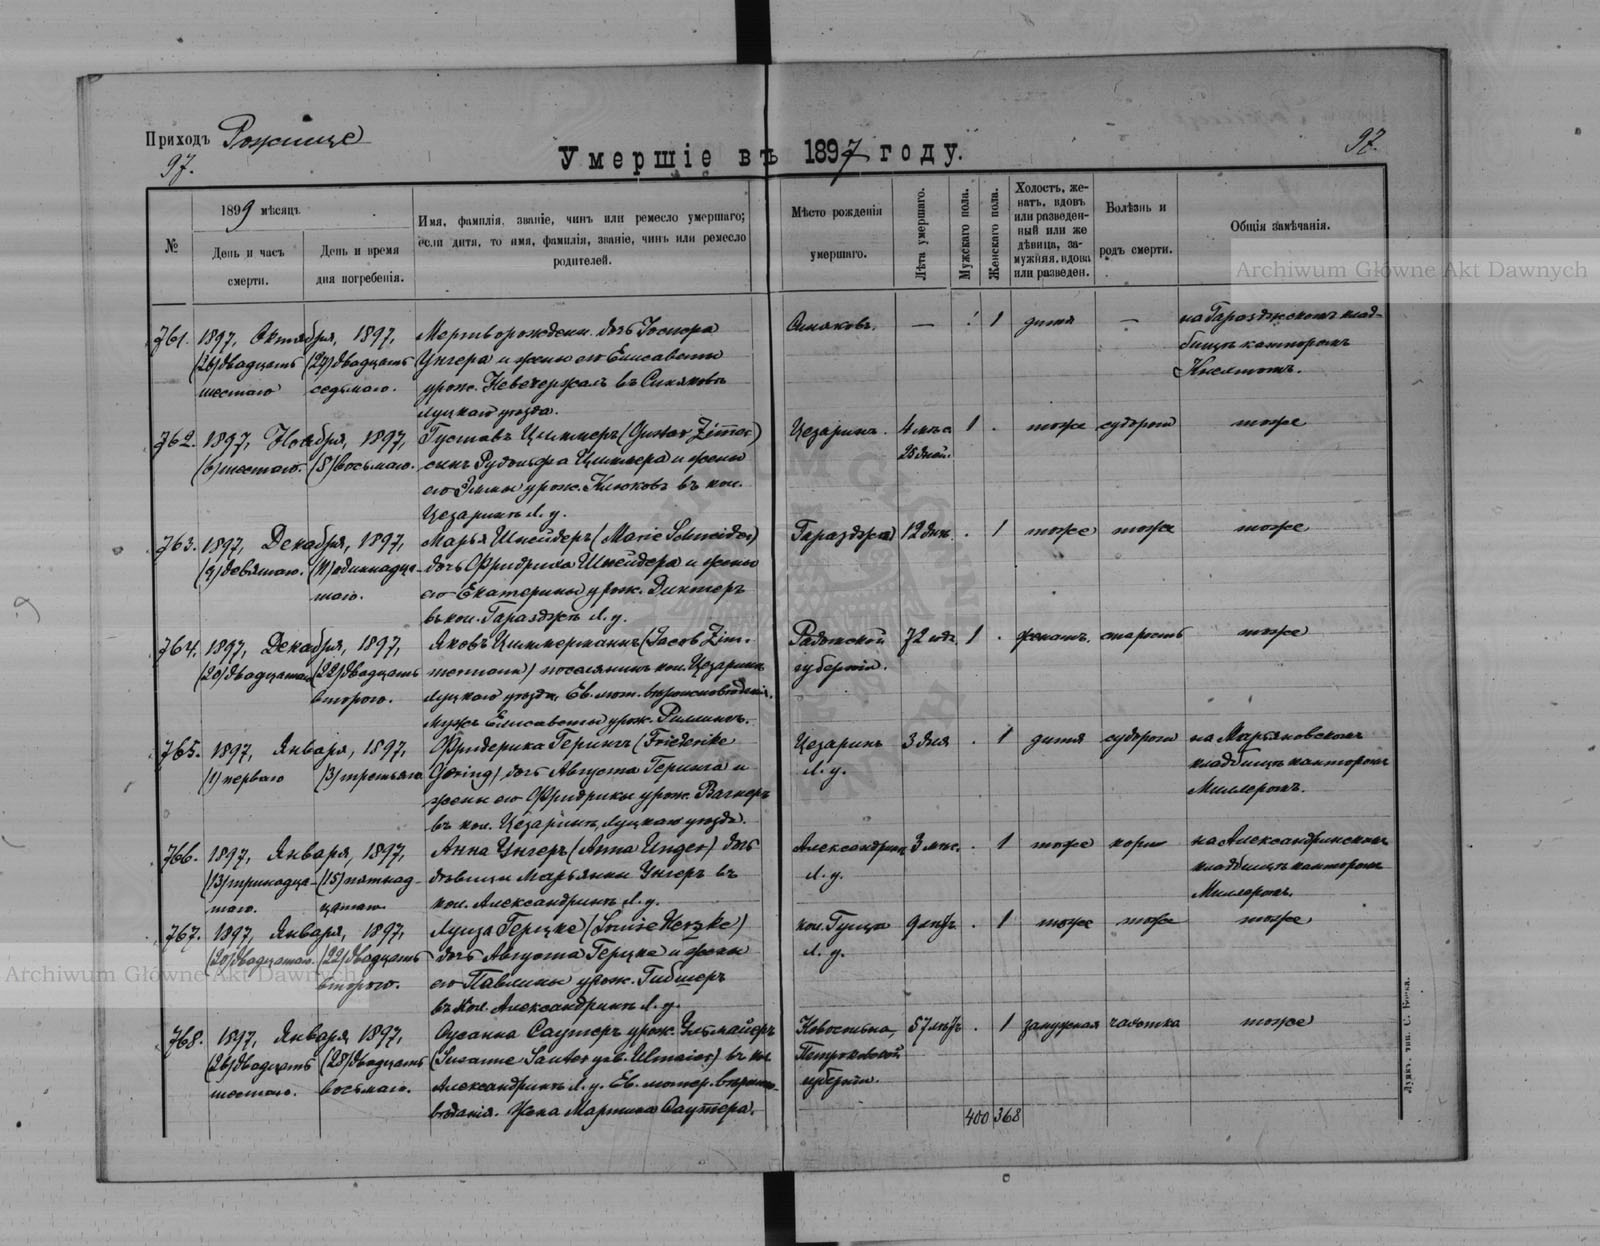 Приходъ Рожище
97.
97.
Умершіе въ 1897 году.
№
1899 мѣсяцъ
День и часъ
смерти.
День и время
дня погребенія.
Имя, фамилія, званіе, чинъ или ремесло умершаго;
если дитя, то имя, фамилія, званіе, чинъ или ремесло
родителей.
Мѣсто рожденія
умершаго.
Лѣта умершаго.
Мужскаго пола.
Женскаго пола.
Холостъ, же-
натъ, вдовъ
или разведен-
ный или же
дѣвица, за-
мужняя, вдова
или разведен.
Болѣзнь и
родъ смерти.
Общія замѣчанія.
Archiwum Główne Akt Dawnych
761. 1897, Октября, 1897, Мертворожденн. дочь — 1 дитя — на Гараздженскомъ клад-
(26) двадцать (27) двадцать Унгера и жены его Елисаветы бищѣ канторомъ
шестаго седьмаго. урож. въ Синяковѣ
луцкаго уѣзда.
762. 1897, Ноября, 1897, Густавъ Циммеръ (Gustav Zimer) Цезаринъ. 4 1 . тоже судороги тоже
(6) шестаго. (8) восьмаго. сынъ Рудольфа Циммера и жены 25 дней.
его Эммы урож. Клюковъ въ кол.
Цезаринъ Л. у.
763. 1897, Декабря, 1897, Марья Шнейдеръ (Marie Schneider) Гаразджа 12 дни. . 1 тоже тоже тоже
(9) девятаго. (11) одиннадца- дочь Фридриха Шнейдера и жены
таго. его Екатерины урож. Диктеръ
въ кол. Гаразджѣ Л. у.
764. 1897, Декабря, 1897, Яковъ Циммерманнъ (Jacob Zim- Радомской 72 1 . женатъ. старость тоже
(20) двадцатаго (22) двадцать mermann) поселянинъ кол. Цезаринъ губерніи.
втораго. луцкаго уѣзда, Ев. лют. вѣроисповѣданія.
мужъ Елисаветы урож.
765. 1897, Января, 1897, Фридерика Герингъ (Friederike Цезаринъ 3 дня . 1 дитя судороги на Марьяновскомъ
(1) перваго (3) третьяго Göring) дочь Августа Геринга и Л. у. кладбищѣ канторомъ
жены его Фридрики урож. Вагнеръ Миллеромъ.
въ кол. Цезаринъ, луцкаго уѣзда.
766. 1897, Января, 1897, Анна Унгеръ (Anna Unger) дочь Александринъ 3 мѣс. . 1 тоже корь на Александринскомъ
(13) тринадца- (15) пятнад- дѣвицы Марьянны Унгеръ въ Л. у. кладбищѣ канторомъ
таго. цатаго. кол. Александринъ Л. у. Миллеромъ.
767. 1897, Января, 1897, Луиза Герцке (Louise Herzke) кол. Гуща 9 . 1 тоже тоже тоже
(20) двадцатаго. (22) двадцать дочь Августа Герцке и жены Л. у.
втораго. его Павлины урож.
въ кол. Александринъ Л. у.
768. 1897, Января, 1897, Сусанна Саутеръ урож. Ульмайеръ 57 лѣтъ . 1 замужняя чахотка тоже
(26) двадцать (28) двадцать (Susanne Sauter geb. Ulmaier) въ кол. Петроковской
шестаго. восьмаго. Александринъ Л. у. Ев. лютер. вѣроиспо- губерніи.
вѣданія. Жена Мартина Саутера.
400 368
Archiwum Główne Akt Dawnych